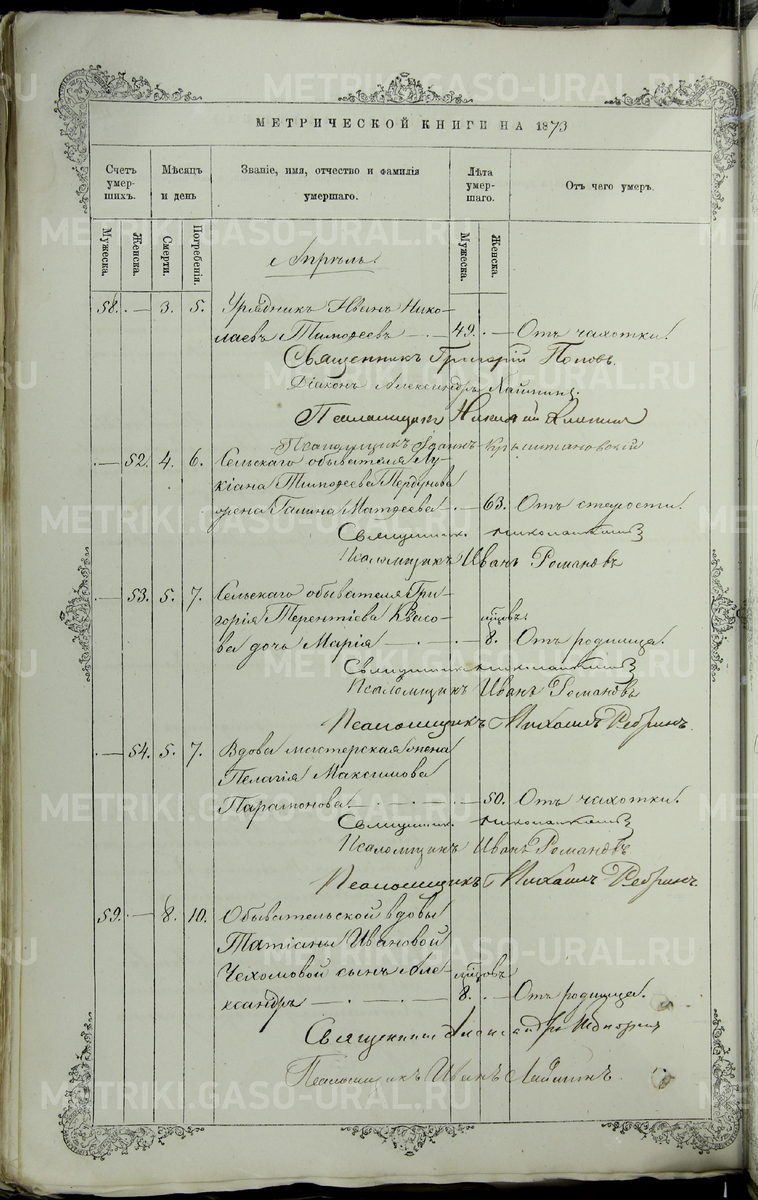 МЕТРИЧЕСКОЙ КНИГИ НА 1873
Счетъ умершихъ.
Мѣсяцъ и день
Званіе, имя, отчество и фамилія умершаго.
Лѣта умершаго.
Отъ чего умеръ.
Мужеска.
Женска.
Смерти.
Погребенія.
Мужеска.
Женска.
Апрѣль.
58. — 3. 5. Урядникъ Иванъ Нико-
лаевъ Тимофеевъ — 49. — Отъ чахотки.
Священникъ Григорій Поповъ.
Діаконъ Александръ
Псаломщикъ Николай
Псаломщикъ Іоаннъ
— 52. 4. 6. Сельскаго обывателя Лу-
кіана Тимофеева
жена Галина Матфеева — 63. Отъ старости.
Священникъ
Псаломщикъ Иванъ Романовъ
— 53. 5. 7. Сельскаго обывателя Гри-
горія Терентіева Квасо- мцовъ
ва дочь Марія — 8. Отъ родимца.
Священникъ
Псаломщикъ Иванъ Романовъ
Псаломщикъ Михаилъ Ребринъ.
— 54. 5. 7. Вдова мастерская жена
Пелагія Максимова
Парамонова — 50. Отъ чахотки.
Священникъ
Псаломщикъ Иванъ Романовъ
Псаломщикъ Михаилъ Ребринъ.
59. — 8. 10. Обывательской вдовы
Татіаны Ивановой
Чехомовой сынъ Але- мцовъ
ксандръ — 8. — Отъ родимца.
Священникъ Александръ
Псаломщикъ Иванъ
METRIKI.GASO-URAL.RU